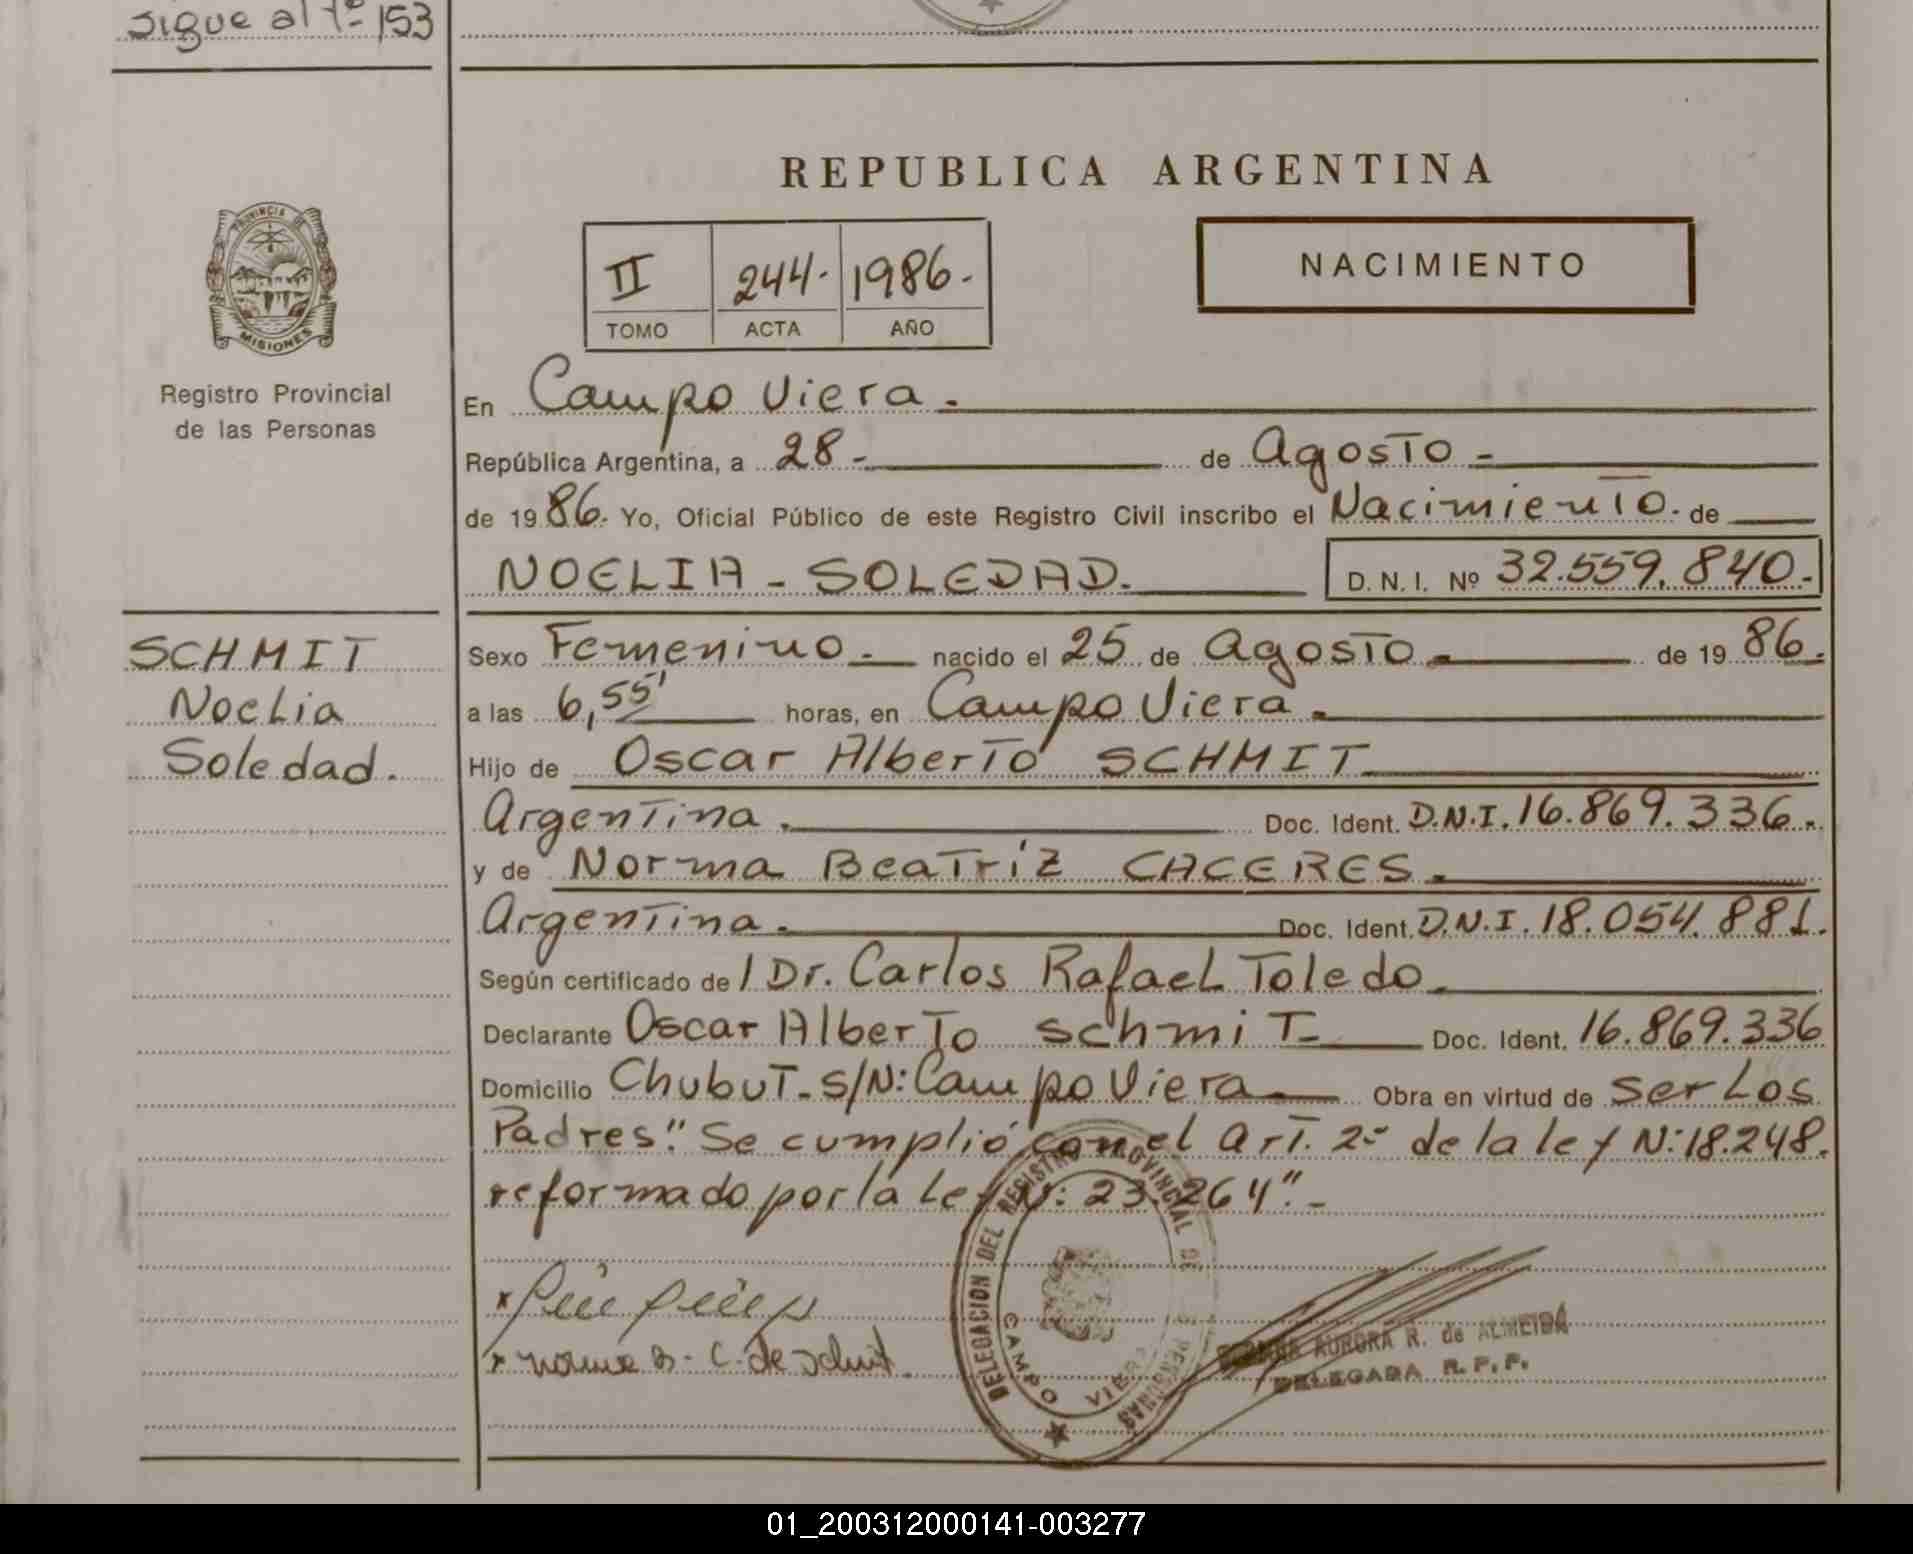 Sigue al fº 153
REPUBLICA ARGENTINA
PROVINCIA DE
MISIONES
Registro Provincial
de las Personas
II 244. 1986.
TOMO ACTA AÑO
NACIMIENTO
En Campo Viera.
República Argentina, a 28- de Agosto -
de 1986. Yo, Oficial Público de este Registro Civil inscribo el Nacimiento. de
NOELIA - SOLEDAD. D. N. I. Nº 32.559.840.-
SCHMIT
Noelia
Soledad.
Sexo Femenino. nacido el 25 de Agosto. de 1986.
a las 6,55' horas, en Campo Viera.
Hijo de Oscar Alberto SCHMIT
Argentina. Doc. Ident. D.N.I. 16.869.336.
y de Norma Beatríz CACERES.
Argentina. Doc. Ident. D.N.I. 18.054.881.
Según certificado de / Dr. Carlos Rafael Toledo.
Declarante Oscar Alberto Schmit Doc. Ident. 16.869.336
Domicilio Chubut. s/N: Campo Viera Obra en virtud de Ser Los
Padres." Se cumplió con el Art. 2º de la ley N: 18.248.
reformado por la Ley N: 23.264".-
x norma B. C. de Schmit.
DELEGACION DEL REGISTRO PROVINCIAL DE PERSONAS
CAMPO VIERA
AURORA R. de ALMEIDA
DELEGADA R. P. P.
01_200312000141-003277